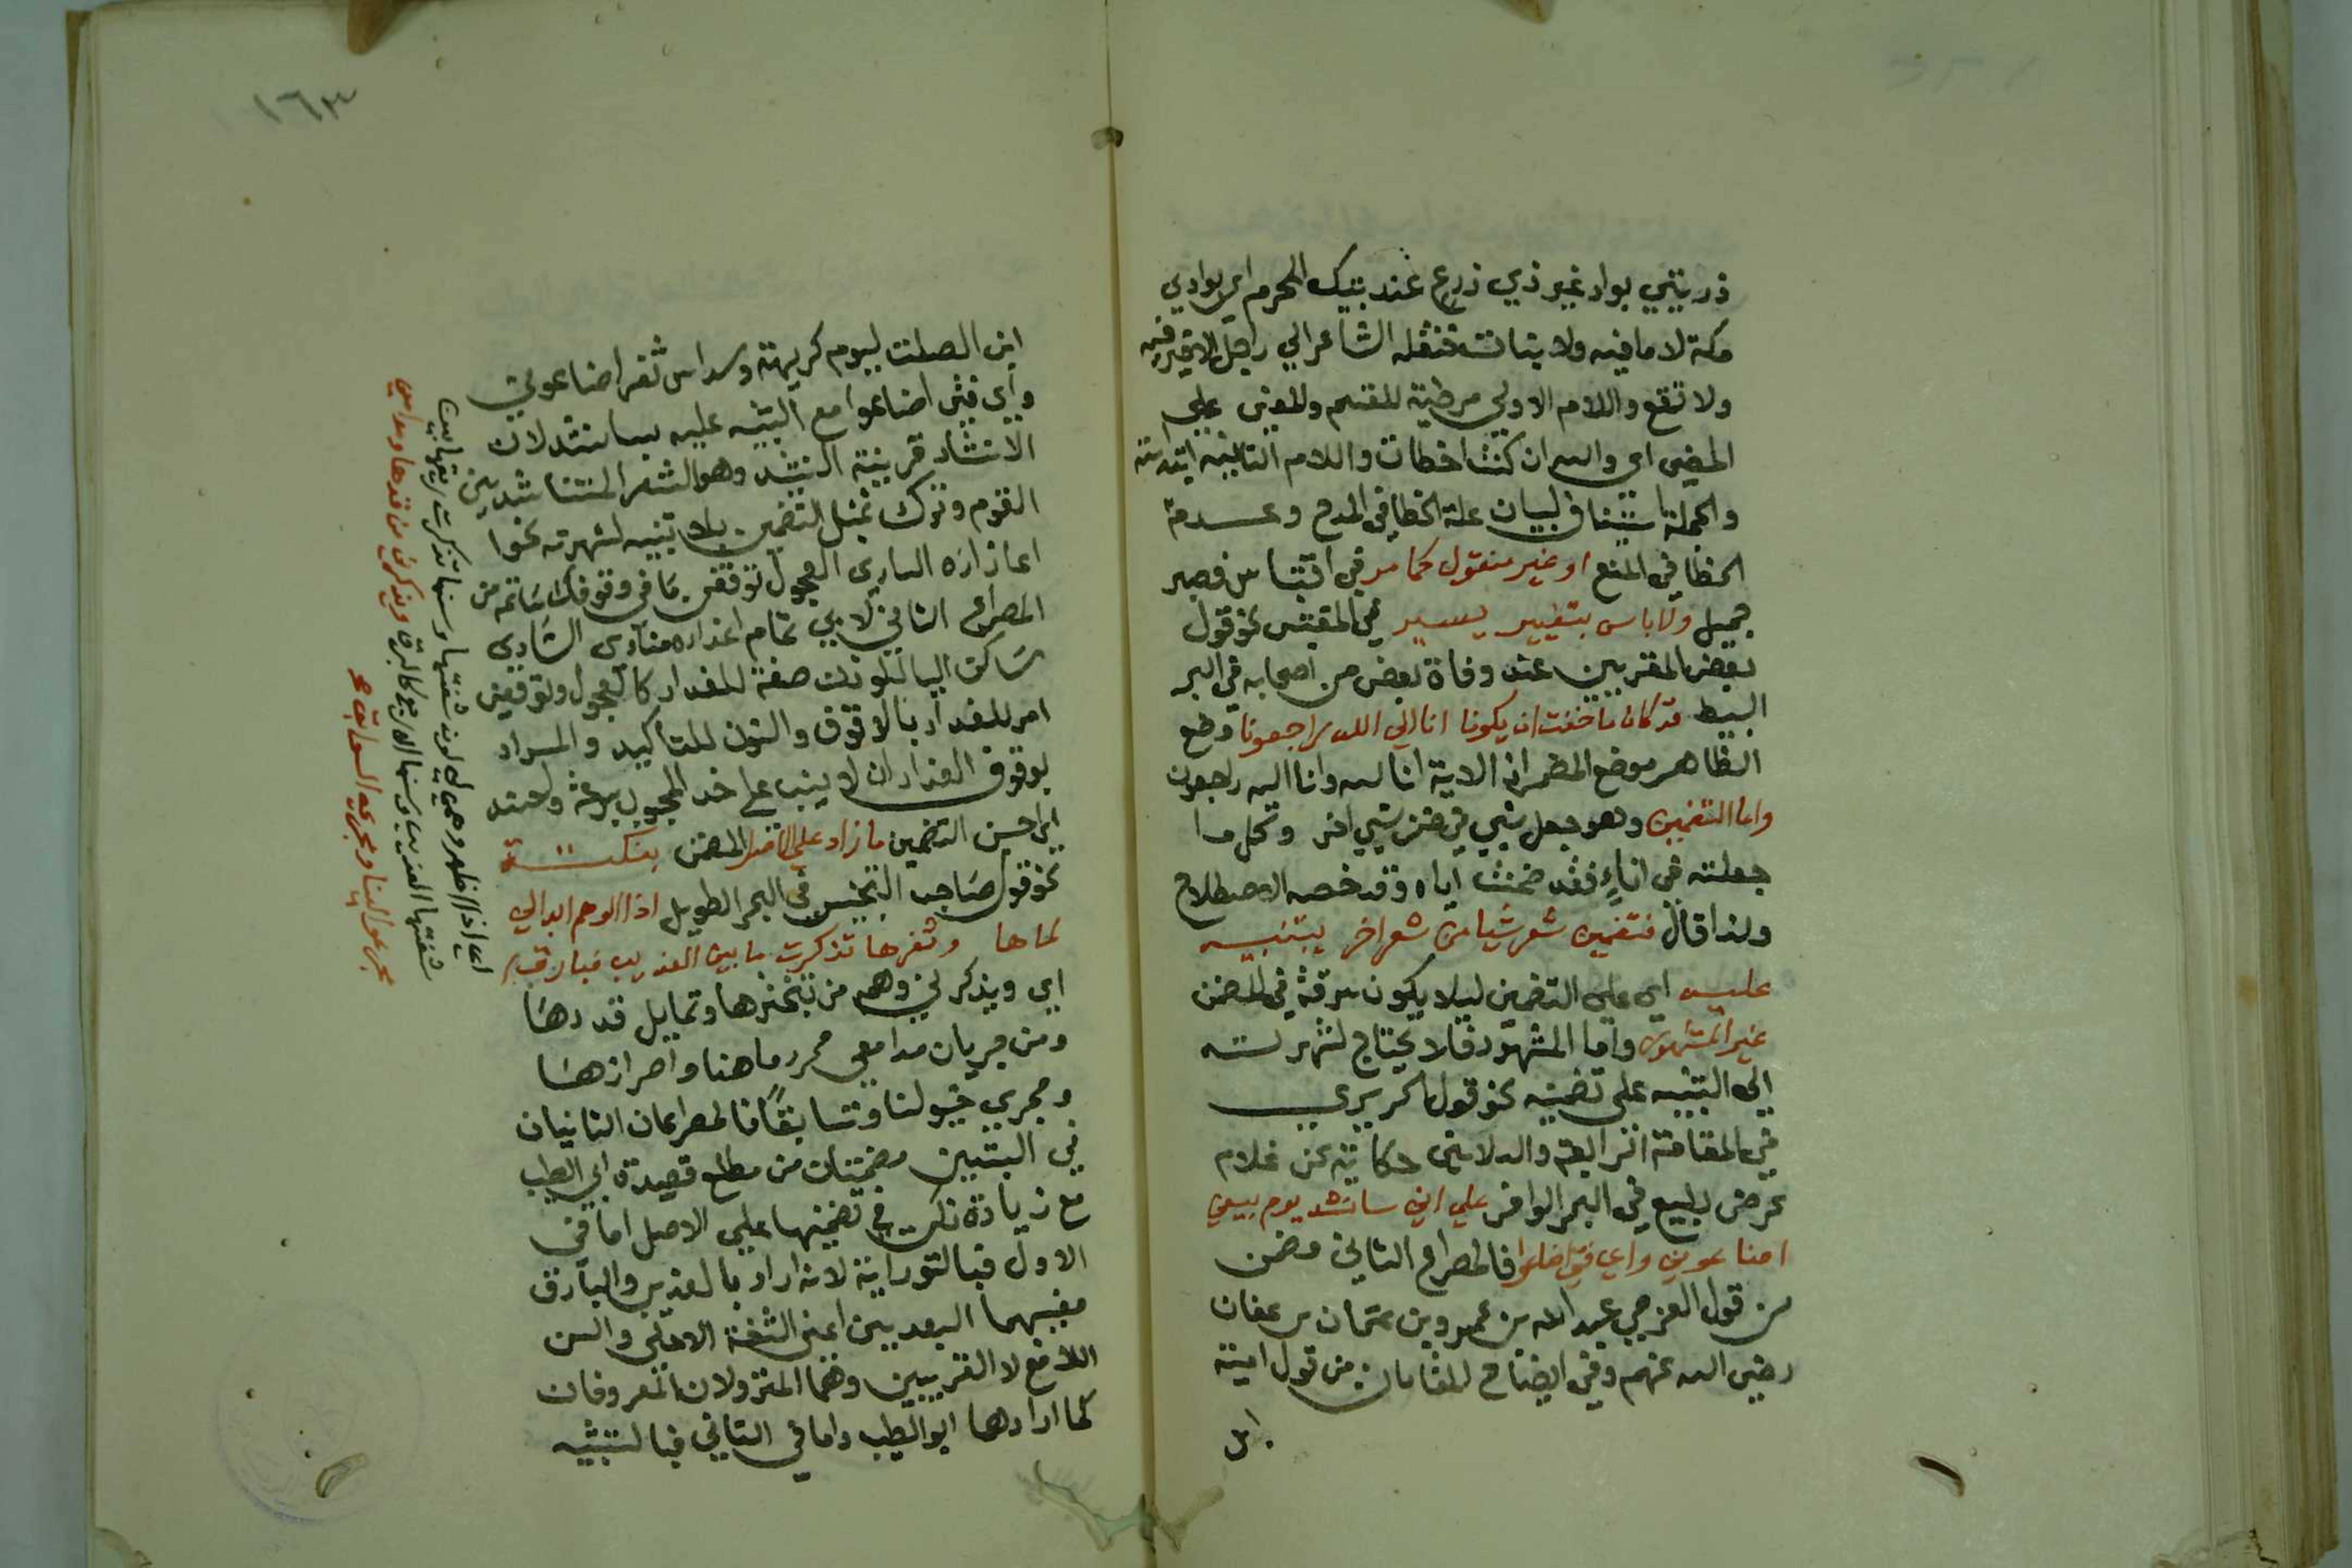 ذريتي بواد غير ذي زرع عند بيتك المحرم اي بوادي
مكة لا ما فيه ولا نبات فنقله الشاعر الي رجل لا خير فيه
ولا نفع واللام الاولي موطية للقسم وللعني علي
المضي اي والله ان كنت اخطات واللام الثانية ابتدائية
والجملة استيناف لبيان علة الخطا في المدح وعدمة
الخطا في المنع او غير منقول كما مر في اقتباس فصبر
جميل ولا باس بتغيير يسير في المقتبس نحو قول
بعض المغربيين عند وفاة بعض من اصحابه في البحر
البسيط قد كان ما خفت ان يكونا انا الي الله راجعونا وضع
الظاهر موضع المضمر اذ الاية انا لله وانا اليه راجعون
واما التضمين وهو جعل شي في ضمن شي اخر وكل ما
جعلته في اناء فقد ضمنت اياه وقد خصه الاصطلاح
ولذا قال فتضمين شعر شيا من شعر اخر بتنبيه
عليه اي علي التضمين ليلا يكون سرقة في المضمن
غير المشهور واما المشهور فلا يحتاج لشهرته
الي التنبيه على تضمينه نحو قول الحريري
في المقامة الرابعة والثلاثين حكاية عن غلام
عرض لبيع في البحر الوافر علي اني سانشد يوم بيعي
اضاعوني واي فتى اضاعوا فالمصراع الثاني مضمن
من قول العرجي عبد الله بن عمرو بن عثمان بن عفان
رضي الله عنهم وفي ايضاح المقامات من قول امية
ابن
١٦٣
ابن الصلت ليوم كريهة وسداس ثغر اضاعوني
واي فتى اضاعوا مع التنبيه عليه بسانشد لان
الانشاد قرينة النشد وهو الشعر المتناشد بين
القوم وترك تمثيل التضمين بلا تنبيه لشهرته نحوا
المصراع الثاني لابي تمام اعذاره منادى الساري
ساكن اليا للوزن صفة للعذار كالعجول وتوقفن
امر للعذار بالاوقوف والنون للتاكيد والمراد
بوقوف العذار ان لا ينبت على خد المحبوب بسرعة وعند
اي احسن التضمين ما زاد علي الاصل المضمن بنكتة
نحو قول صاحب التجنيس في البحر الطويل اذا الوهم ابدا لي
لماها وثغرها تذكرت ما بين العذيب فبارق
اي ويذكرني وهم من تبخترها وتمايل قددها
ومن جريان مدامعي مجر رماحنا واحرازها
ومجري خيولنا وتسابقا فالمصراعان الثانيان
في البيتين مضمنان من مطلع قصيدة ابي الطيب
مع زيادة نكت في تضمينها علي الاصل اما في
الاول فبالتوراية لانه اراد بالعذيب والبارق
معنييهما البعيدين اعني الشفة الاعلى والسن
اللامع لا القريبين وهما المنزولان المعروفان
كما ارادهما ابو الطيب واما في الثاني فبالتشبيه
مجر عوالينا ومجرى السوابق